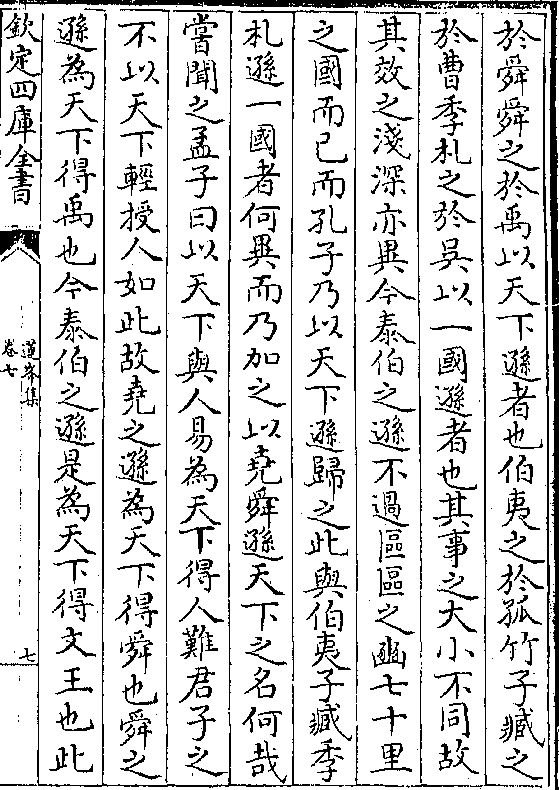 於舜舜之於禹以天下遜者也伯夷之於孤竹子臧之
於曹季札之於吳以一國遜者也其事之大小不同故
其效之淺深亦異今泰伯之遜不過區區之豳七十里
之國而已而孔子乃以天下遜歸之此與伯夷子臧季
札遜一國者何異而乃加之以堯舜遜天下之名何哉
嘗聞之孟子曰以天下與人易為天下得人難君子之
不以天下輕授人如此故堯之遜為天下得舜也舜之
遜為天下得禹也今泰伯之遜是為天下得文王也此
欽定四庫全書
蓮峰集
卷七
七